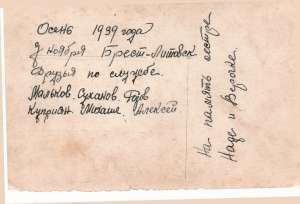 Осень 1939 года
7 ноября Брест-Литовск
Друзья по службе.
Мальков. Суханов.
Куприян. Алексей
На память сестре
Наде и Верочке.